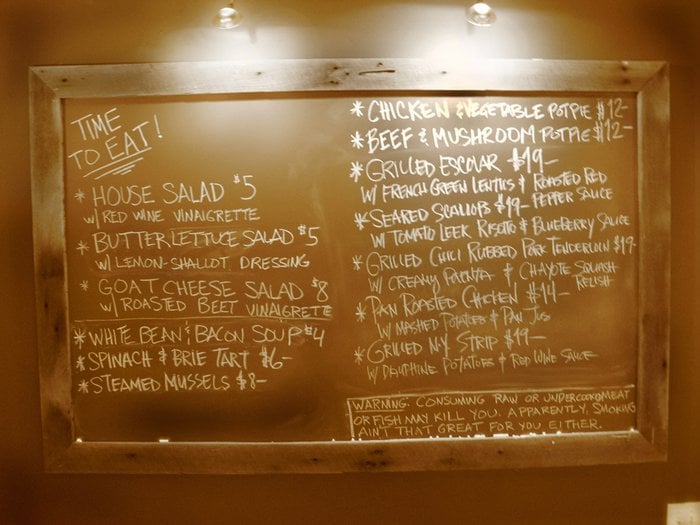 TIME
TO EAT!
* HOUSE SALAD $5
w/ RED WINE VINAIGRETTE
* BUTTER LETTUCE SALAD $5
w/ LEMON-SHALLOT DRESSING
* GOAT CHEESE SALAD $8
w/ ROASTED BEET VINAIGRETTE
* WHITE BEAN & BACON SOUP $4
* SPINACH & BRIE TART $6-
* STEAMED MUSSELS $8-
* CHICKEN & VEGETABLE POTPIE $12-
* BEEF & MUSHROOM POTPIE $12-
* GRILLED ESCOLAR $19-
W/ FRENCH GREEN LENTILS & ROASTED RED PEPPER SAUCE
* SEARED SCALLOPS $19-
W/ TOMATO LEEK RISOTTO & BLUEBERRY SAUCE
* GRILLED CHILI RUBBED PORK TENDERLOIN $19-
W/ CREAMY POLENTA & CHAYOTE SQUASH RELISH
* PAN ROASTED CHICKEN $14-
W/ MASHED POTATOES & PAN JUS
* GRILLED NY STRIP $19-
W/ DAUPHINE POTATOES & RED WINE SAUCE
WARNING: CONSUMING RAW OR UNDERCOOKED MEAT
OR FISH MAY KILL YOU. APPARENTLY, SMOKING
AIN'T THAT GREAT FOR YOU EITHER.